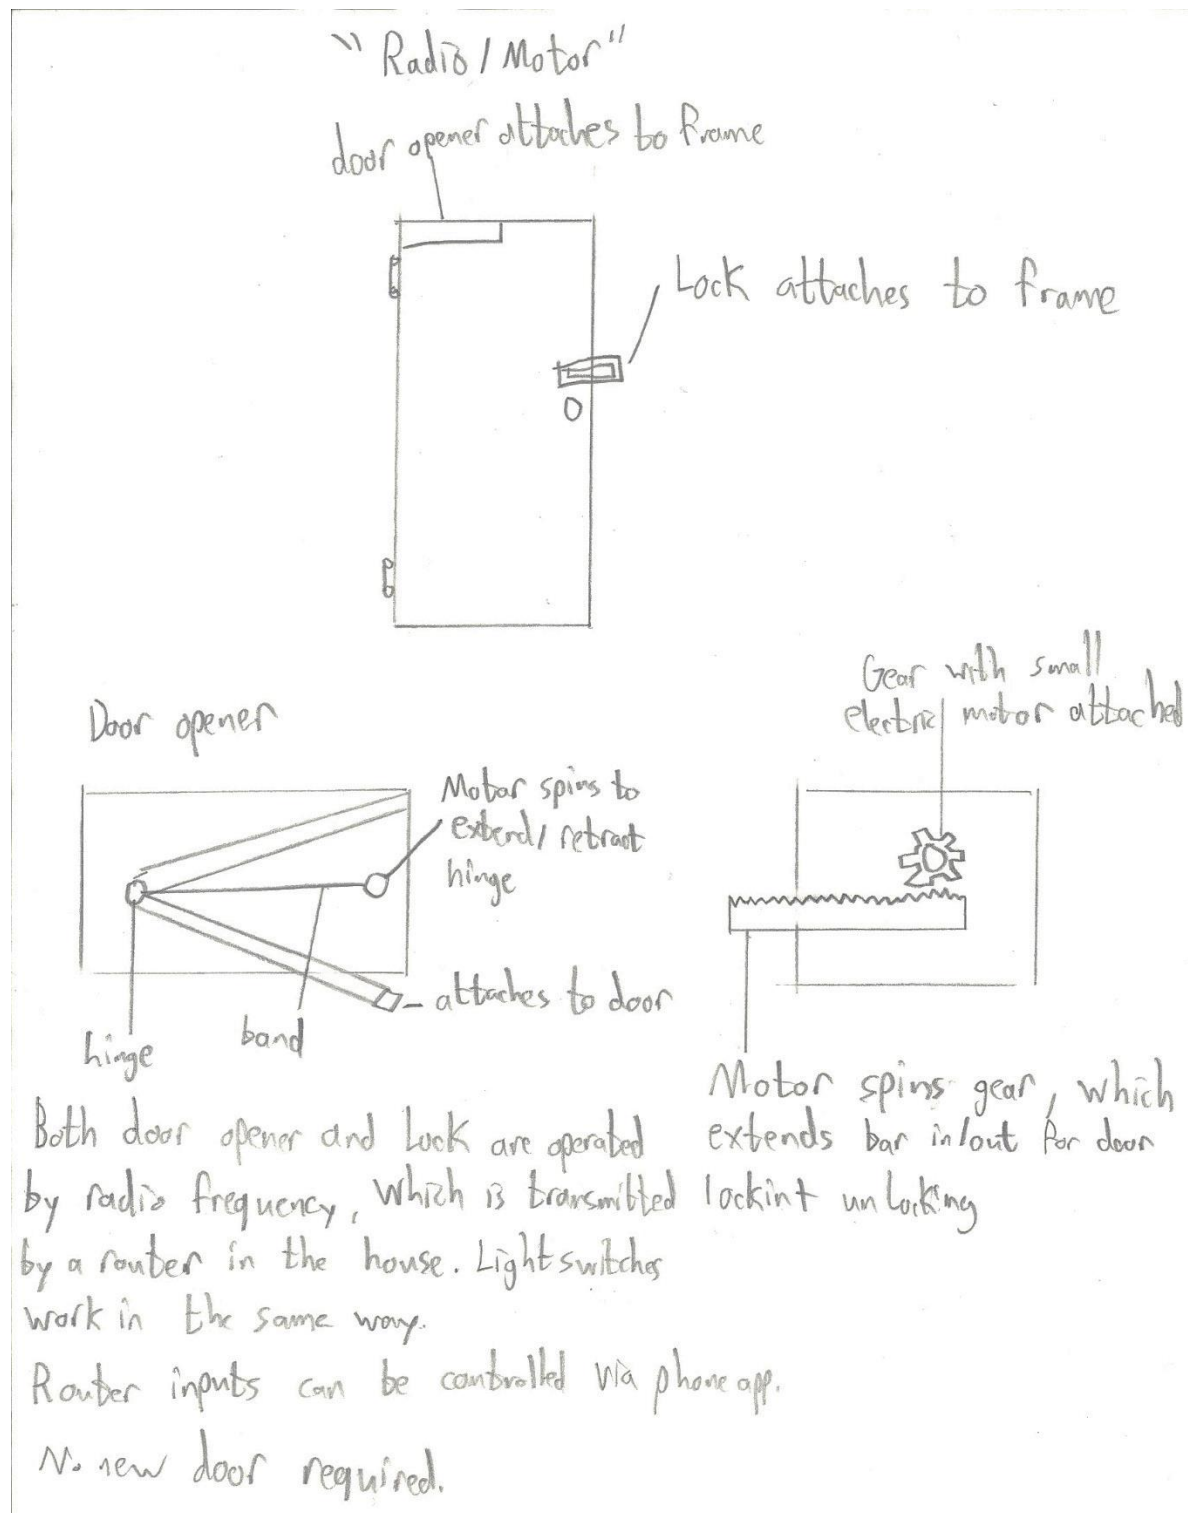 "Radio / Motor"
door opener attaches to frame
Lock attaches to frame
Door opener
Motor spins to
extend / retract
hinge
attaches to door
hinge
band
Gear with small
electric motor attached
Motor spins gear, which
extends bar in/out for door
lockint unlocking
Both door opener and Lock are operated
by radio frequency, which is transmitted
by a router in the house. Light switches
work in the same way.
Router inputs can be controlled via phone app.
No new door required.